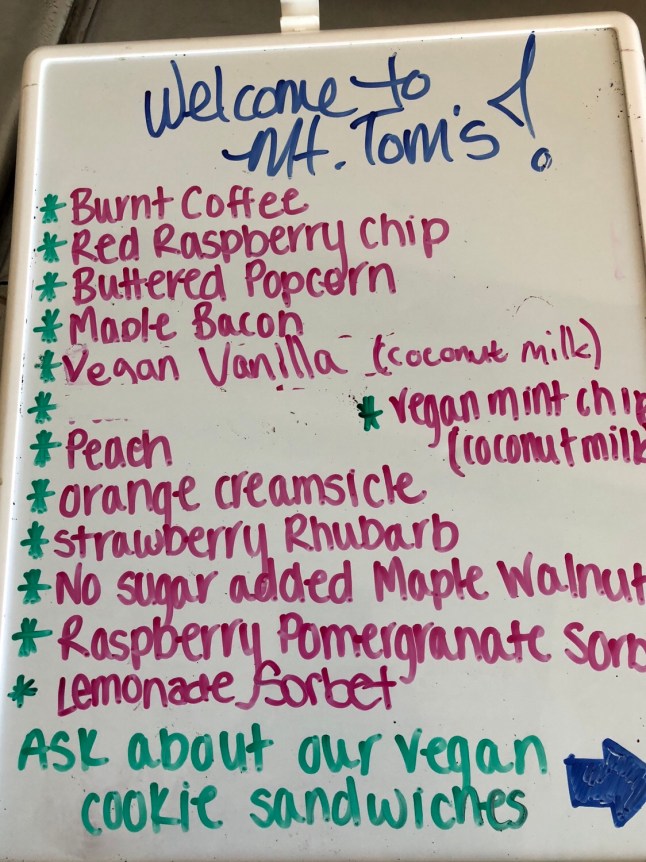 Welcome to
Mt. Tom's!
* Burnt Coffee
* Red Raspberry Chip
* Buttered Popcorn
* Maple Bacon
* Vegan Vanilla (coconut milk)
*
* vegan mint chip
(coconut milk
* Peach
* orange creamsicle
* strawberry Rhubarb
* No sugar added Maple Walnut
* Raspberry Pomergranate Sorb
* Lemonade Sorbet
Ask about our vegan
cookie sandwiches